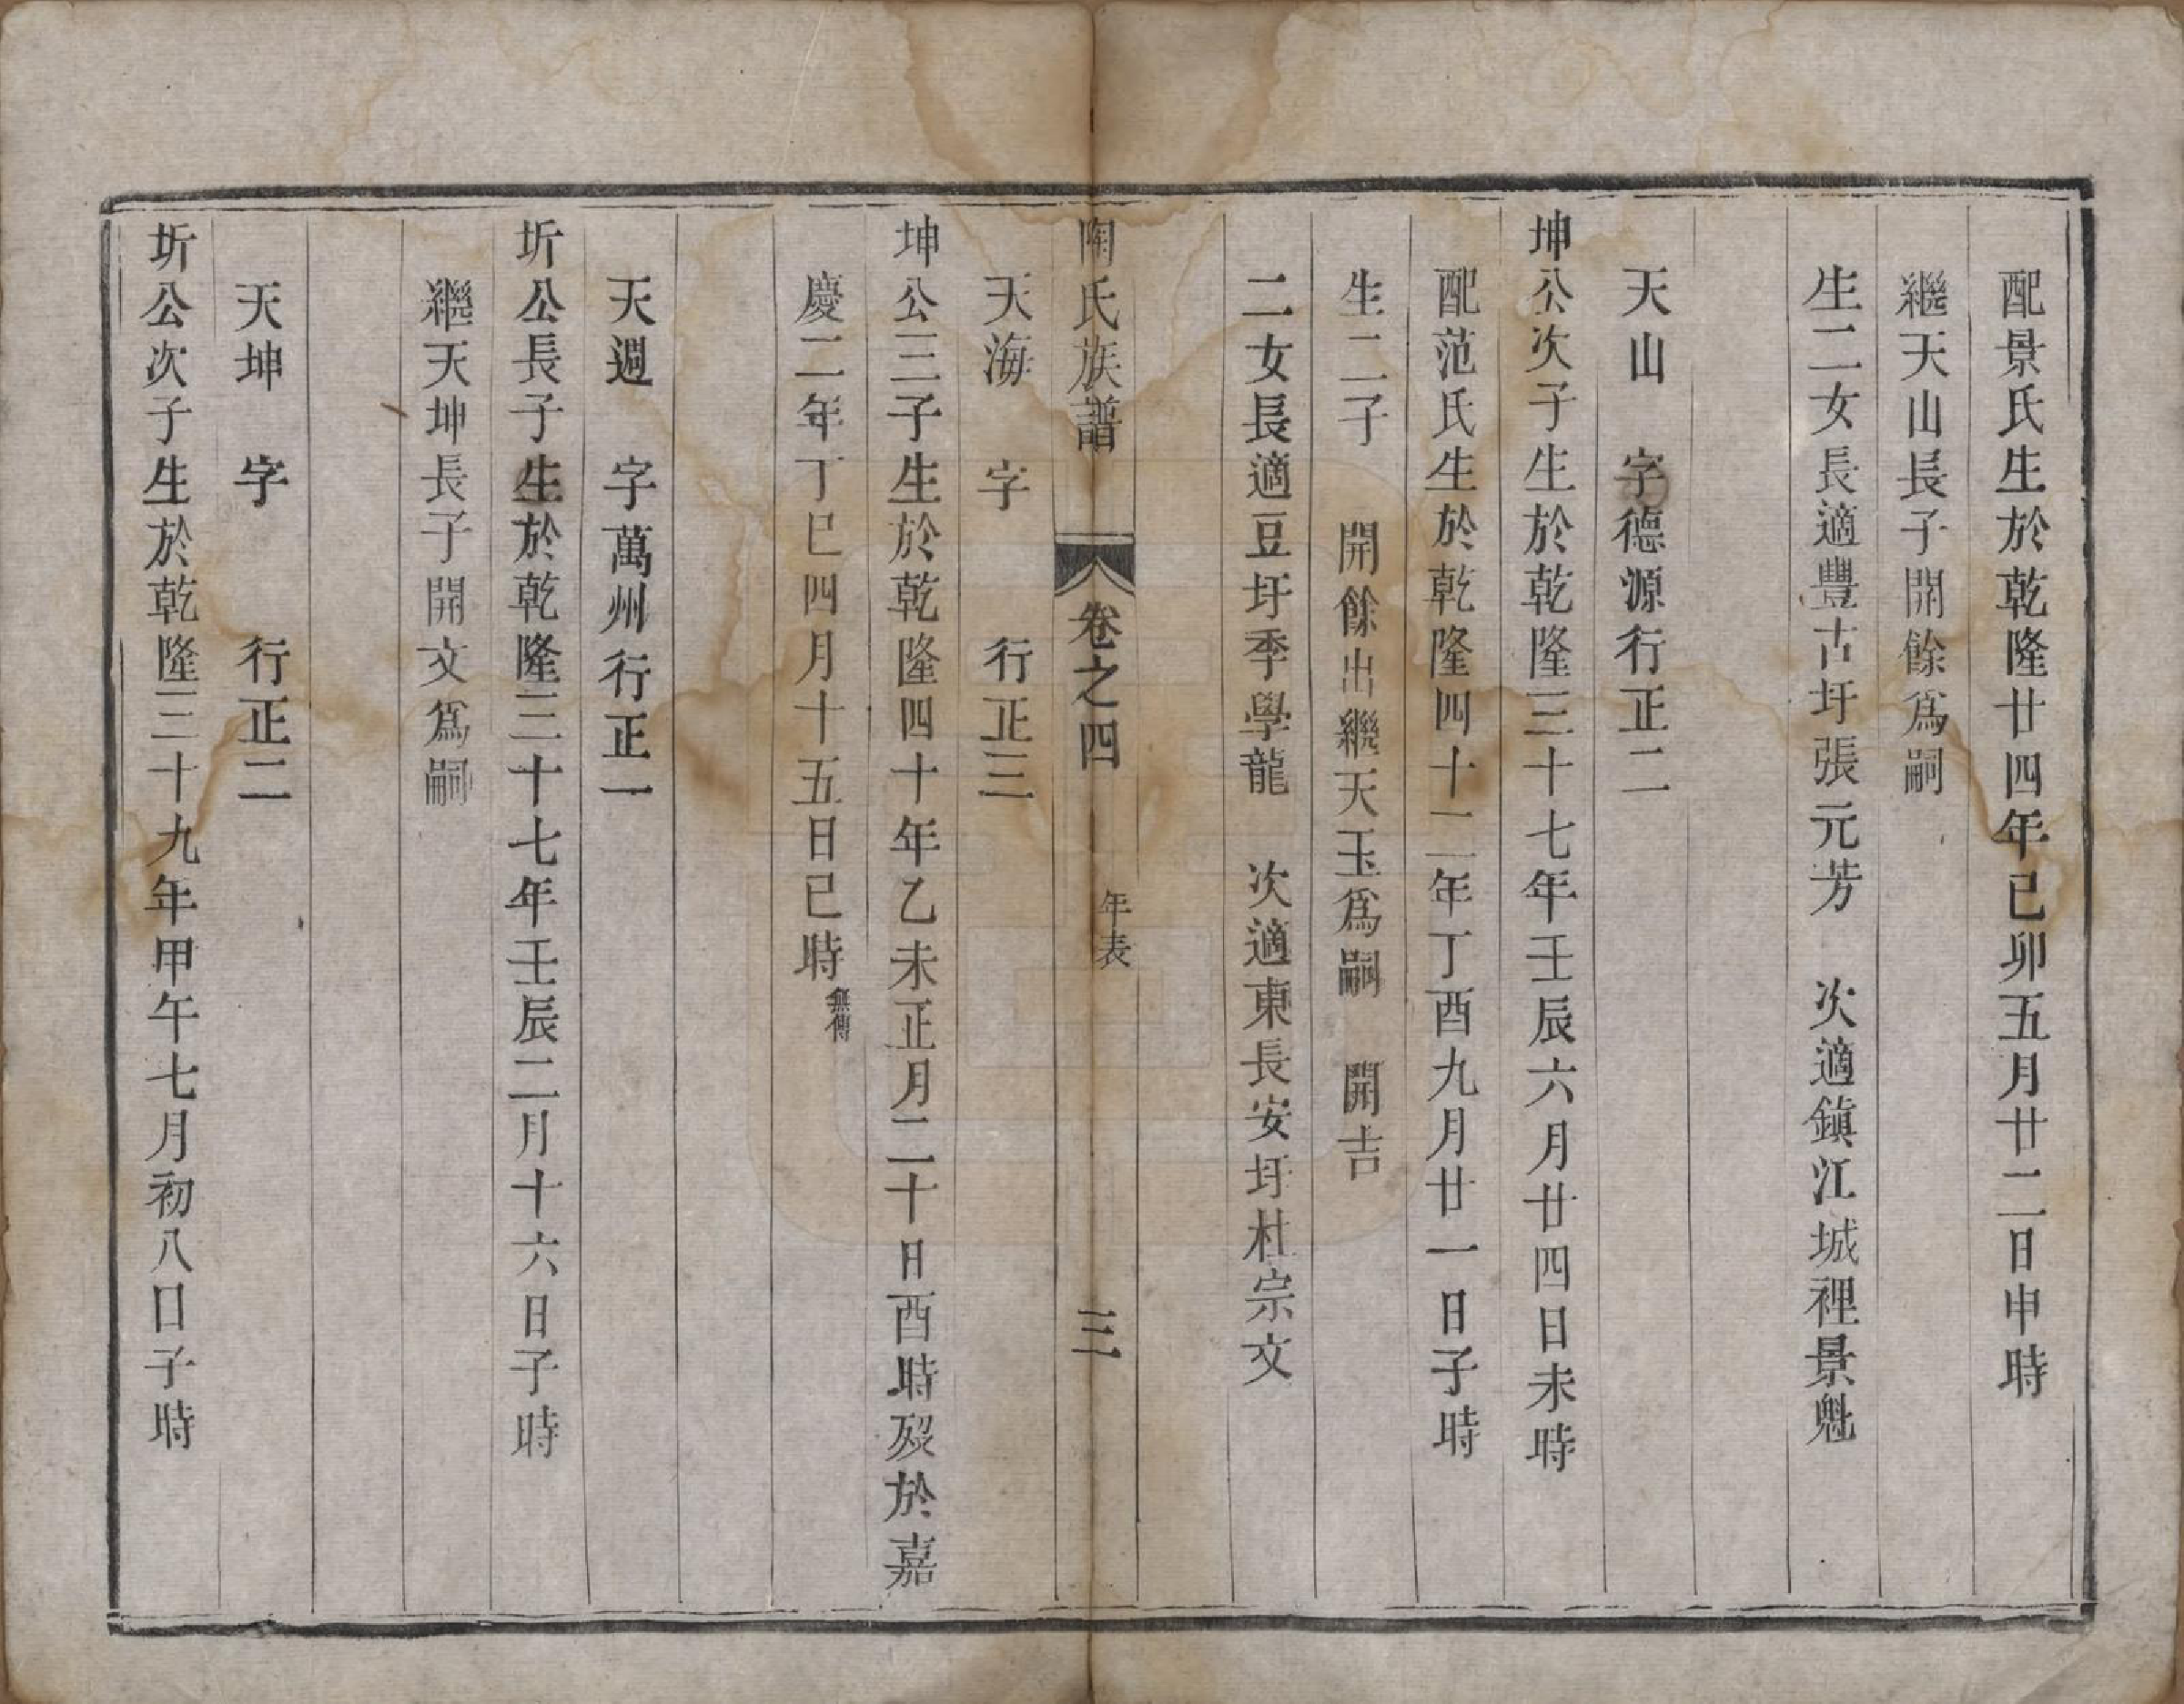 配景氏生於乾隆廿四年己卯五月廿二日申時
繼天山長子開餘爲嗣
生二女長適豐古圩張元芳　次適鎮江城裡景魁
天山　字德源行正二
坤公次子生於乾隆三十七年壬辰六月廿四日未時
配范氏生於乾隆四十二年丁酉九月廿一日子時
生二子　開餘出繼天玉爲嗣　開吉
二女長適豆圩季學龍　次適東長安圩杜宗文
陶氏族譜　卷之四　年表　三
天海　字　　行正三
坤公三子生於乾隆四十年乙未正月二十日酉時歿於嘉
慶二年丁巳四月十五日巳時無傳
天週　字萬州行正一
圻公長子生於乾隆三十七年壬辰二月十六日子時
繼天坤長子開文爲嗣
天坤　字　　行正二
圻公次子生於乾隆三十九年甲午七月初八日子時